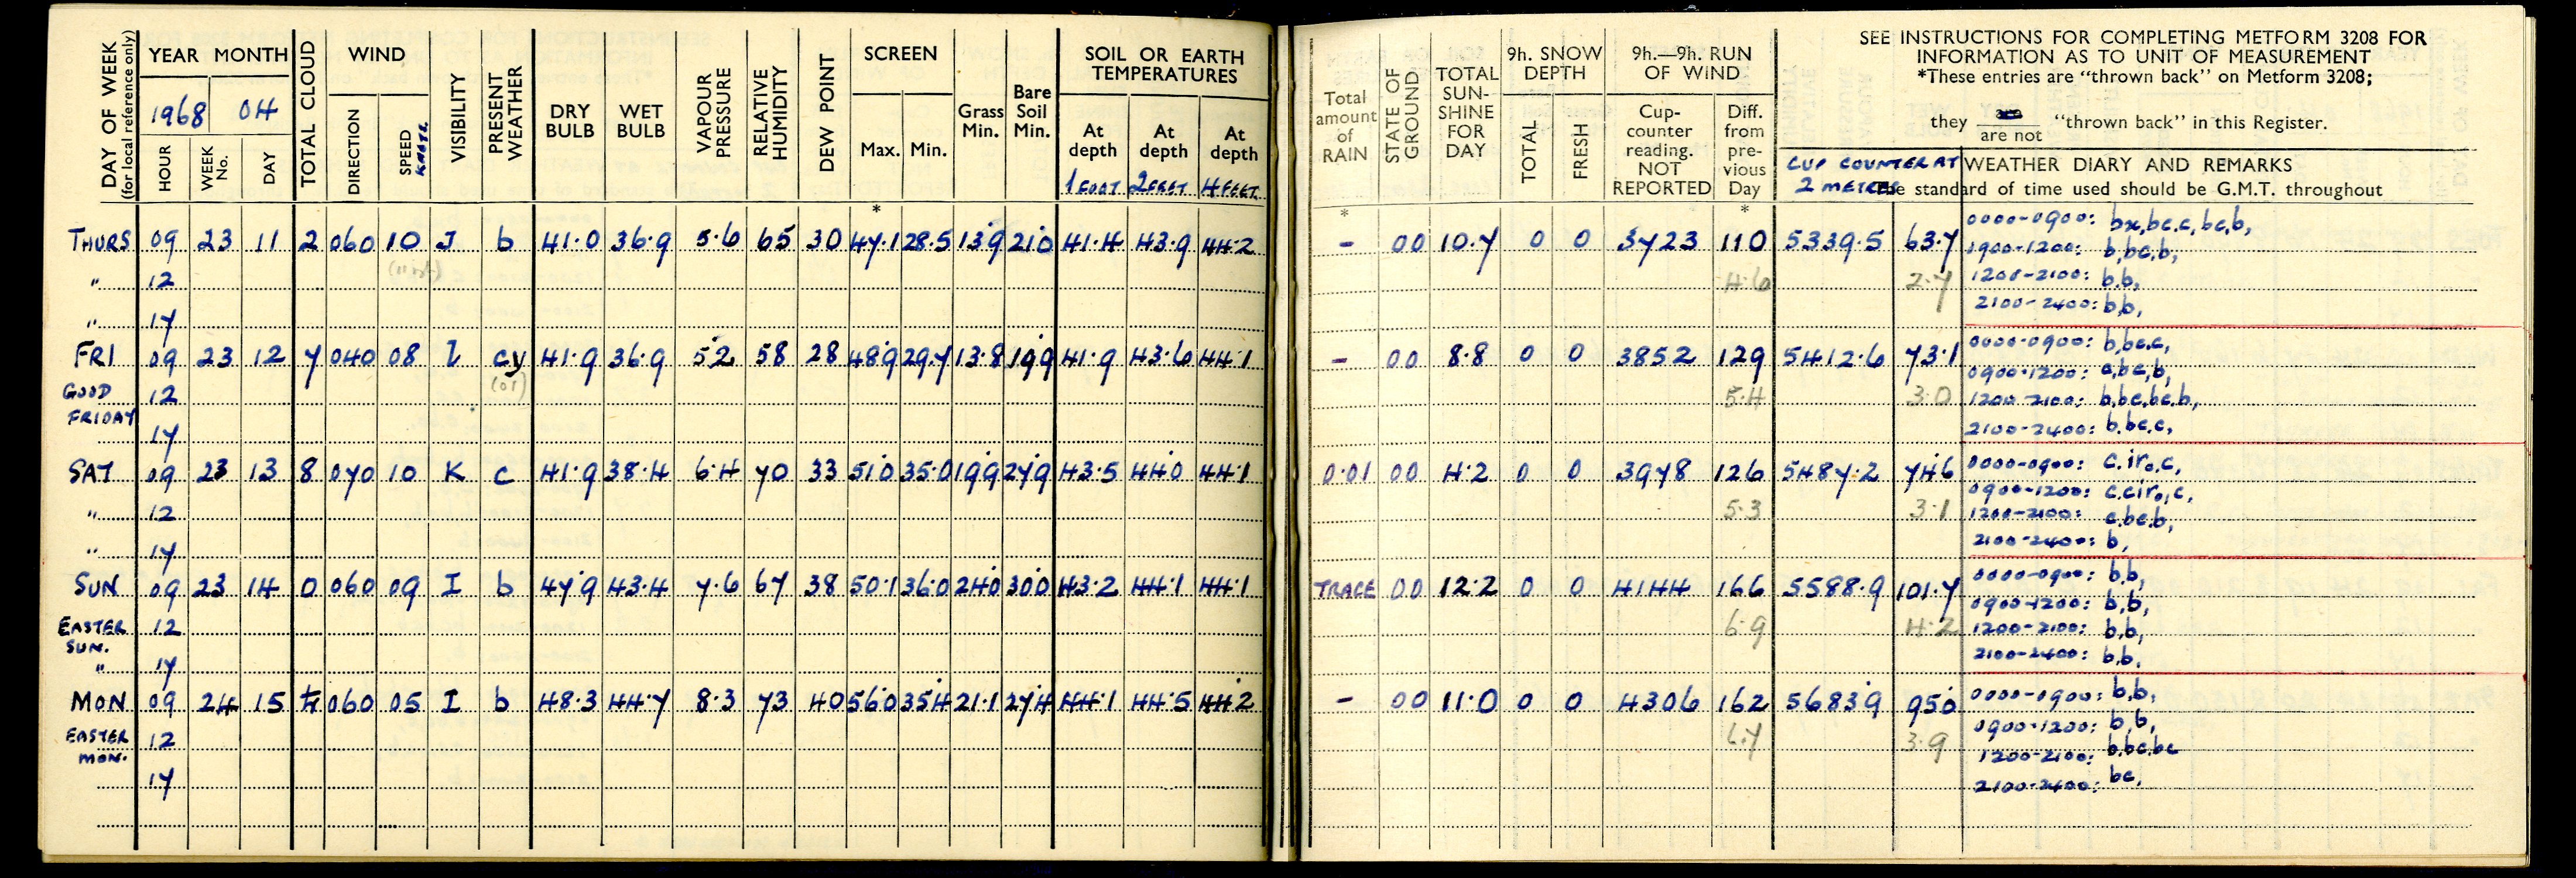 DAY OF WEEK (for local reference only) YEAR MONTH TOTAL CLOUD WIND VISIBILITY PRESENT WEATHER DRY BULB WET BULB VAPOUR PRESSURE RELATIVE HUMIDITY DEW POINT SCREEN Grass Min. Bare Soil Min. SOIL OR EARTH TEMPERATURES
1968 04
HOUR WEEK No. DAY DIRECTION SPEED KNOTS Max. Min. At depth At depth At depth
1 FOOT 2 FEET 4 FEET
*
THURS 09 23 11 2 060 10 J b 41.0 36.9 5.6 65 30 47.1 28.5 13.9 21.0 41.4 43.9 44.2
" 12
" 17
FRI 09 23 12 7 040 08 I cy 41.9 36.9 5.2 58 28 48.9 29.7 13.8 19.9 41.9 43.6 44.1
GOOD 12
FRIDAY 17
SAT 09 23 13 8 070 10 K c 41.9 38.4 6.4 70 33 51.0 35.0 19.9 27.9 43.5 44.0 44.1
" 12
" 17
SUN 09 23 14 0 060 09 I b 47.9 43.4 7.6 67 38 50.1 36.0 24.0 30.0 43.2 44.1 44.1
EASTER SUN. 12
" 17
MON 09 24 15 060 05 I b 48.3 44.7 8.3 73 40 56.0 35.4 21.1 27.4 44.1 44.5 44.2
EASTER MON. 12
17
Total amount of RAIN STATE OF GROUND TOTAL SUN-SHINE FOR DAY 9h. SNOW DEPTH 9h.—9h. RUN OF WIND
TOTAL FRESH Cup-counter reading. NOT REPORTED Diff. from pre-vious Day
SEE INSTRUCTIONS FOR COMPLETING METFORM 3208 FOR
INFORMATION AS TO UNIT OF MEASUREMENT
*These entries are "thrown back" on Metform 3208;
they are / are not "thrown back" in this Register.
CUP COUNTER AT 2 METRES
WEATHER DIARY AND REMARKS
The standard of time used should be G.M.T. throughout
* *
- 00 10.7 0 0 3723 110 5339.5 63.7
4.6 2.7
0000-0900: bx,bc.c,bc,b,
0900-1200: b,bc,b,
1200-2100: b.b,
2100-2400: b.b,
- 00 8.8 0 0 3852 129 5412.6 73.1
5.4 3.0
0000-0900: b,bc.c,
0900-1200: c,bc,b,
1200-2100: b,bc,bc,b,
2100-2400: b.bc.c,
0.01 00 4.2 0 0 3978 126 5487.2 74.6
5.3 3.1
0000-0900: c.iro,c,
0900-1200: c.ciro,c,
1200-2100: c.bc.b,
2100-2400: b,
TRACE 00 12.2 0 0 4144 166 5588.9 101.7
6.9 4.2
0000-0900: b.b,
0900-1200: b,b,
1200-2100: b.b,
2100-2400: b.b.
- 00 11.0 0 0 4306 162 5683.9 95.0
6.7 3.9
0000-0900: b.b,
0900-1200: b,b,
1200-2100: b.bc.bc
2100-2400: bc,